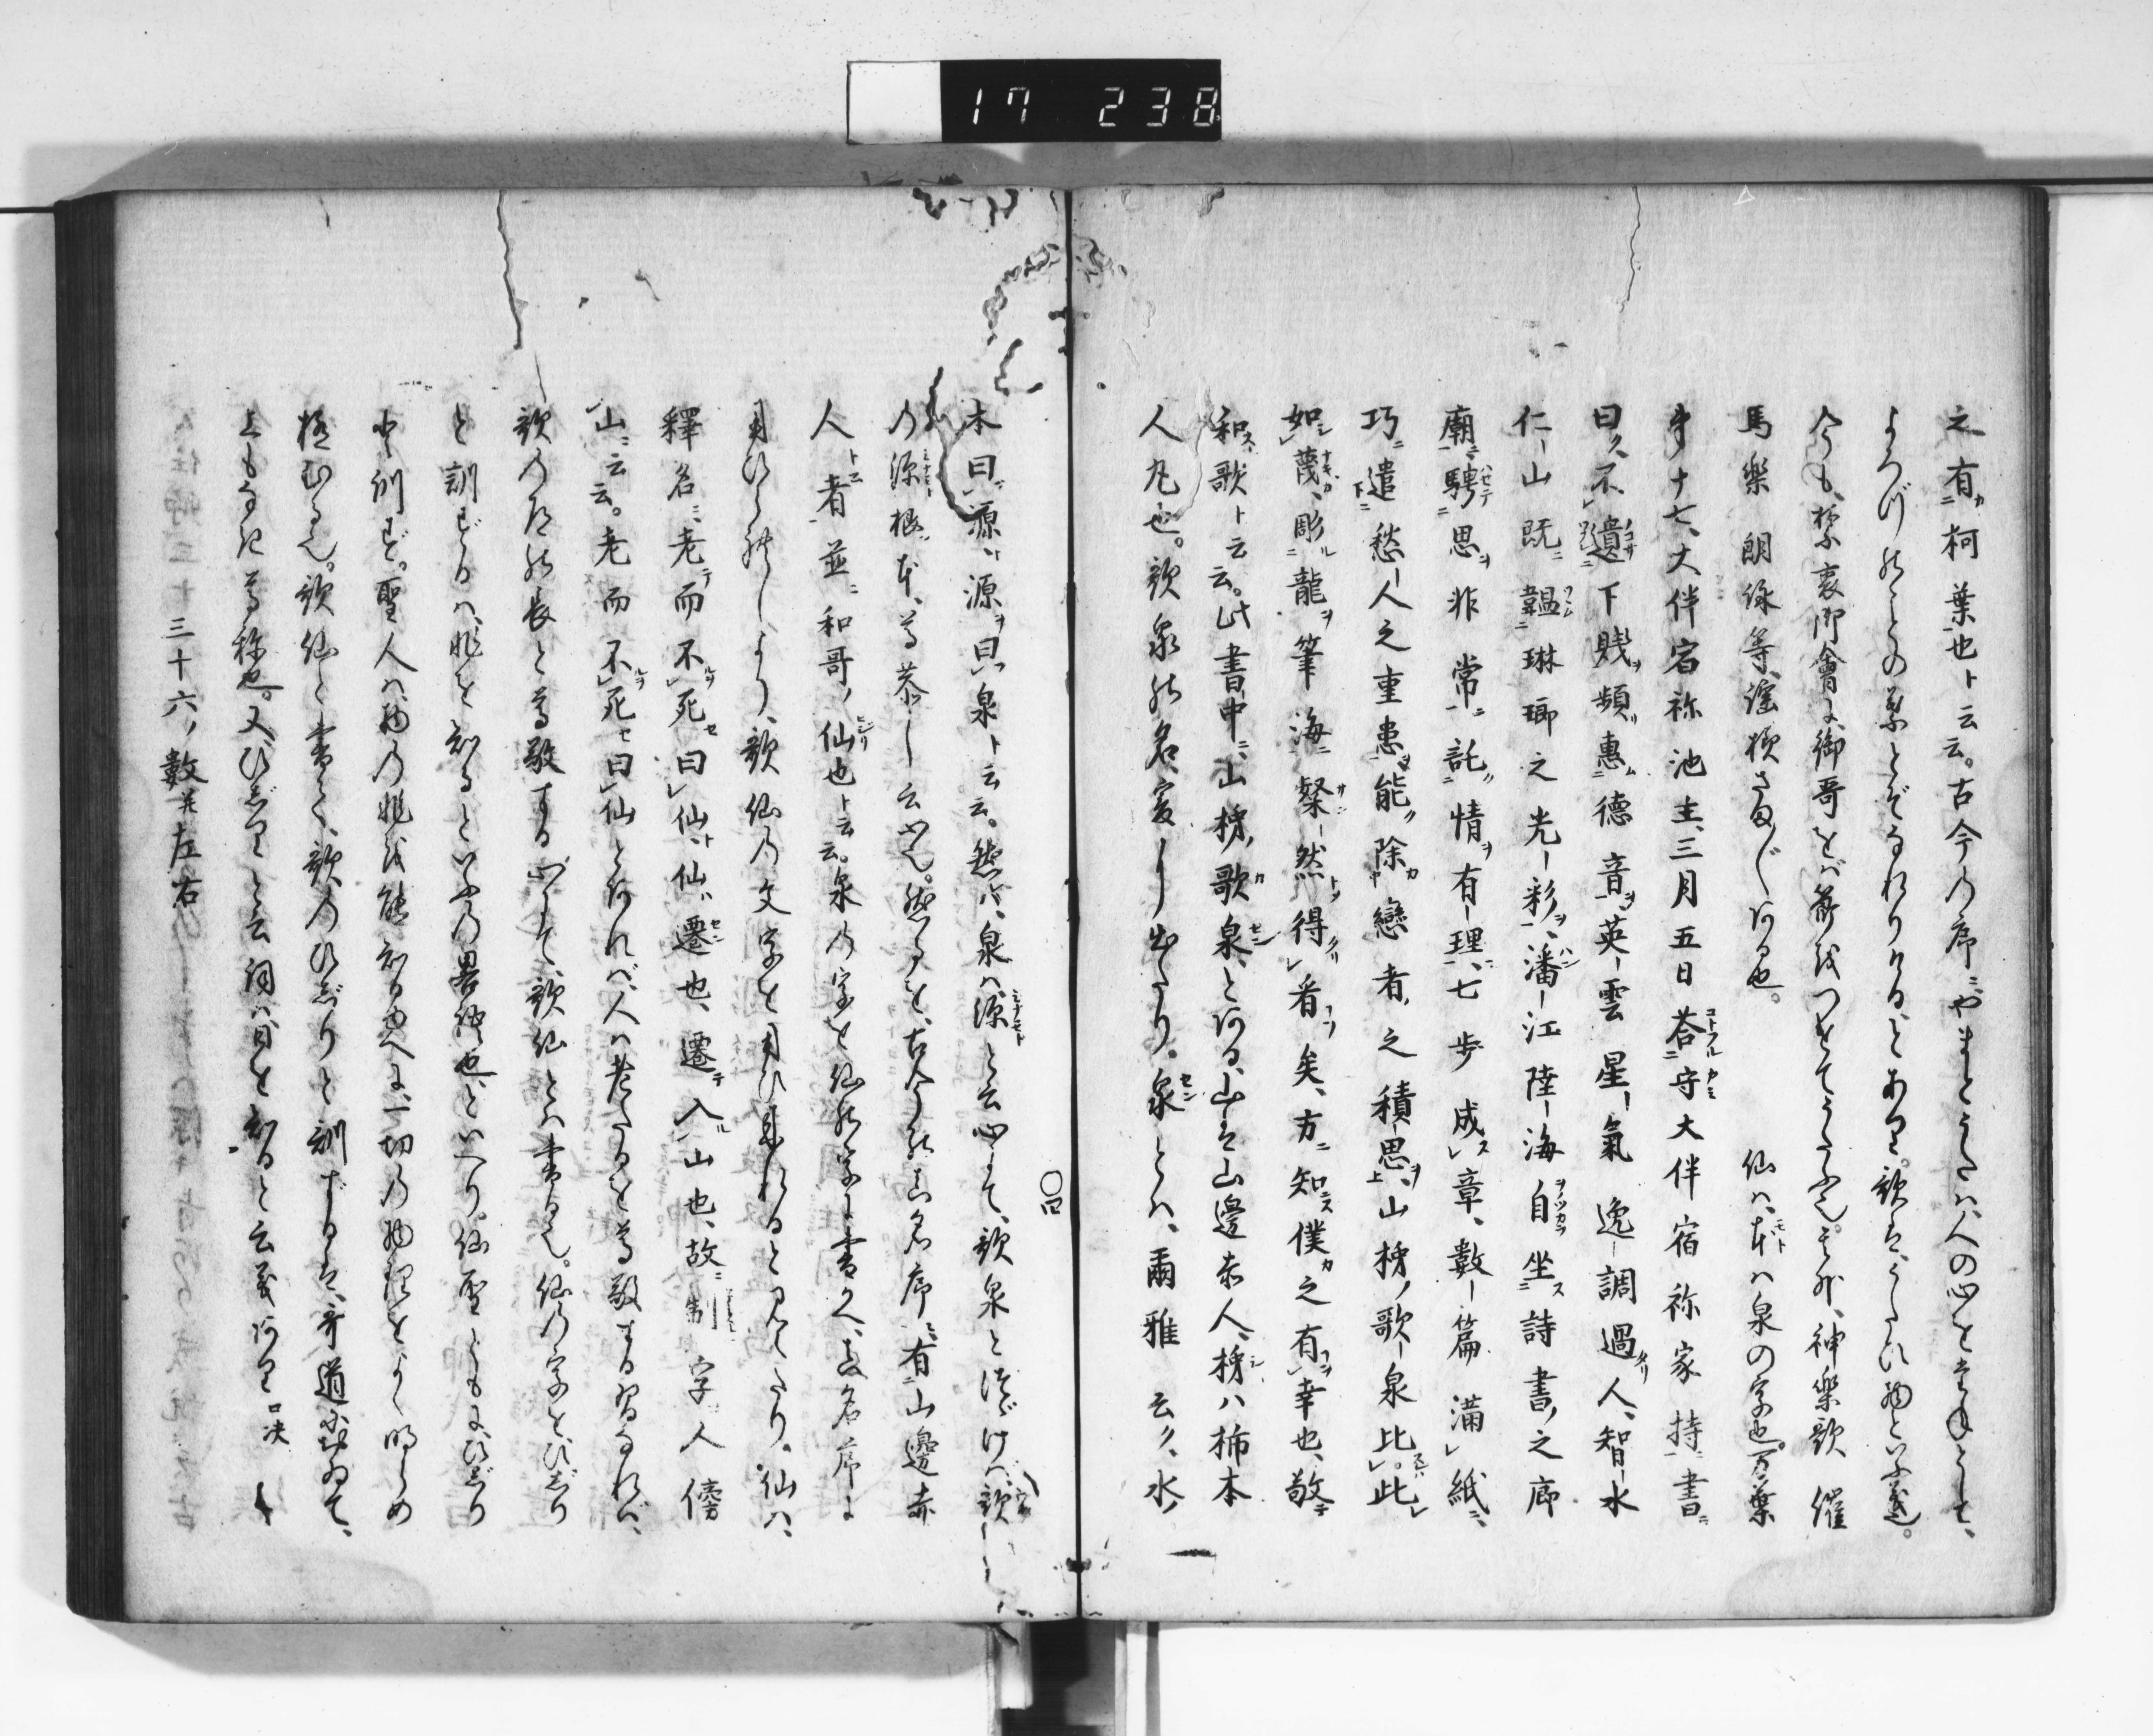 17 238
之有柯葉也ト云云。古今乃序ニ、やまとうたハ、人の心をたねとして、
よろづのことの葉とぞなれりける、とあり。歌は、うたひ物といふ義。
今も、禁裏御會に、御哥をば節をつけてうたふ也。其外、神樂歌 催
馬樂 朗詠等、謡物さまざまあり也。 仙ハ、本ハ泉の字也。万葉
第十七、大伴宿祢池主、三月五日 荅守大伴宿祢家持書ニ
曰ク、不遺下賤頻惠德音、英雲星氣 逸調過人、智水
仁山既韞琳瑯之光彩、潘江陸海自坐詩書之廊
廟、騁思非常託情有理、七歩成章、數篇滿紙、
巧遣愁人之重患、能除戀者之積思、山柿ノ歌泉比此
如蔑、彫龍筆海粲然得看矣、方知僕之有幸也、敬
和歌ト云云。此書中ニ、山柿ノ歌泉とある、山は山邊赤人、柿ハ柿本
人丸也。歌泉の名爰より出たり。泉とハ、爾雅云ク、水ノ
本曰源ト、源ヲ曰泉ト云云。然バ、泉ハ源と云心にて、歌泉とつゞけバ、歌
乃源根本、尊恭し云也。然るを、古今の真名序ニ、有山邊赤
人ト云者、並ニ和哥ノ仙也ト云云。泉乃字を仙の字に書かへ、真名序に
用ひられしより、歌仙乃文字を用ひ来れると見えたり。仙ハ、
釋名ニ、老而不死曰仙、仙ハ遷也、遷入山也、故制字人傍
山ニ云云。老而不死曰仙とあれば、人ハ老たるを尊敬する習なれば、
歌乃道の長と尊敬する心にて、歌仙とハ書る也。仙乃字を、ひじり
と訓ずるハ、非を知るといふ乃畧語也、といへり。仙聖ともに、ひじり
と訓ず。聖人ハ、物乃非を能知る由へに、一切乃物理をよく明らめ
極むる也。歌仙と書て、歌乃ひじりと訓ずるは、哥道に於ゐて、
上もなき尊称也。又ひじりと云詞ハ日を知ると云義あり 口决
三十六ノ數并左右